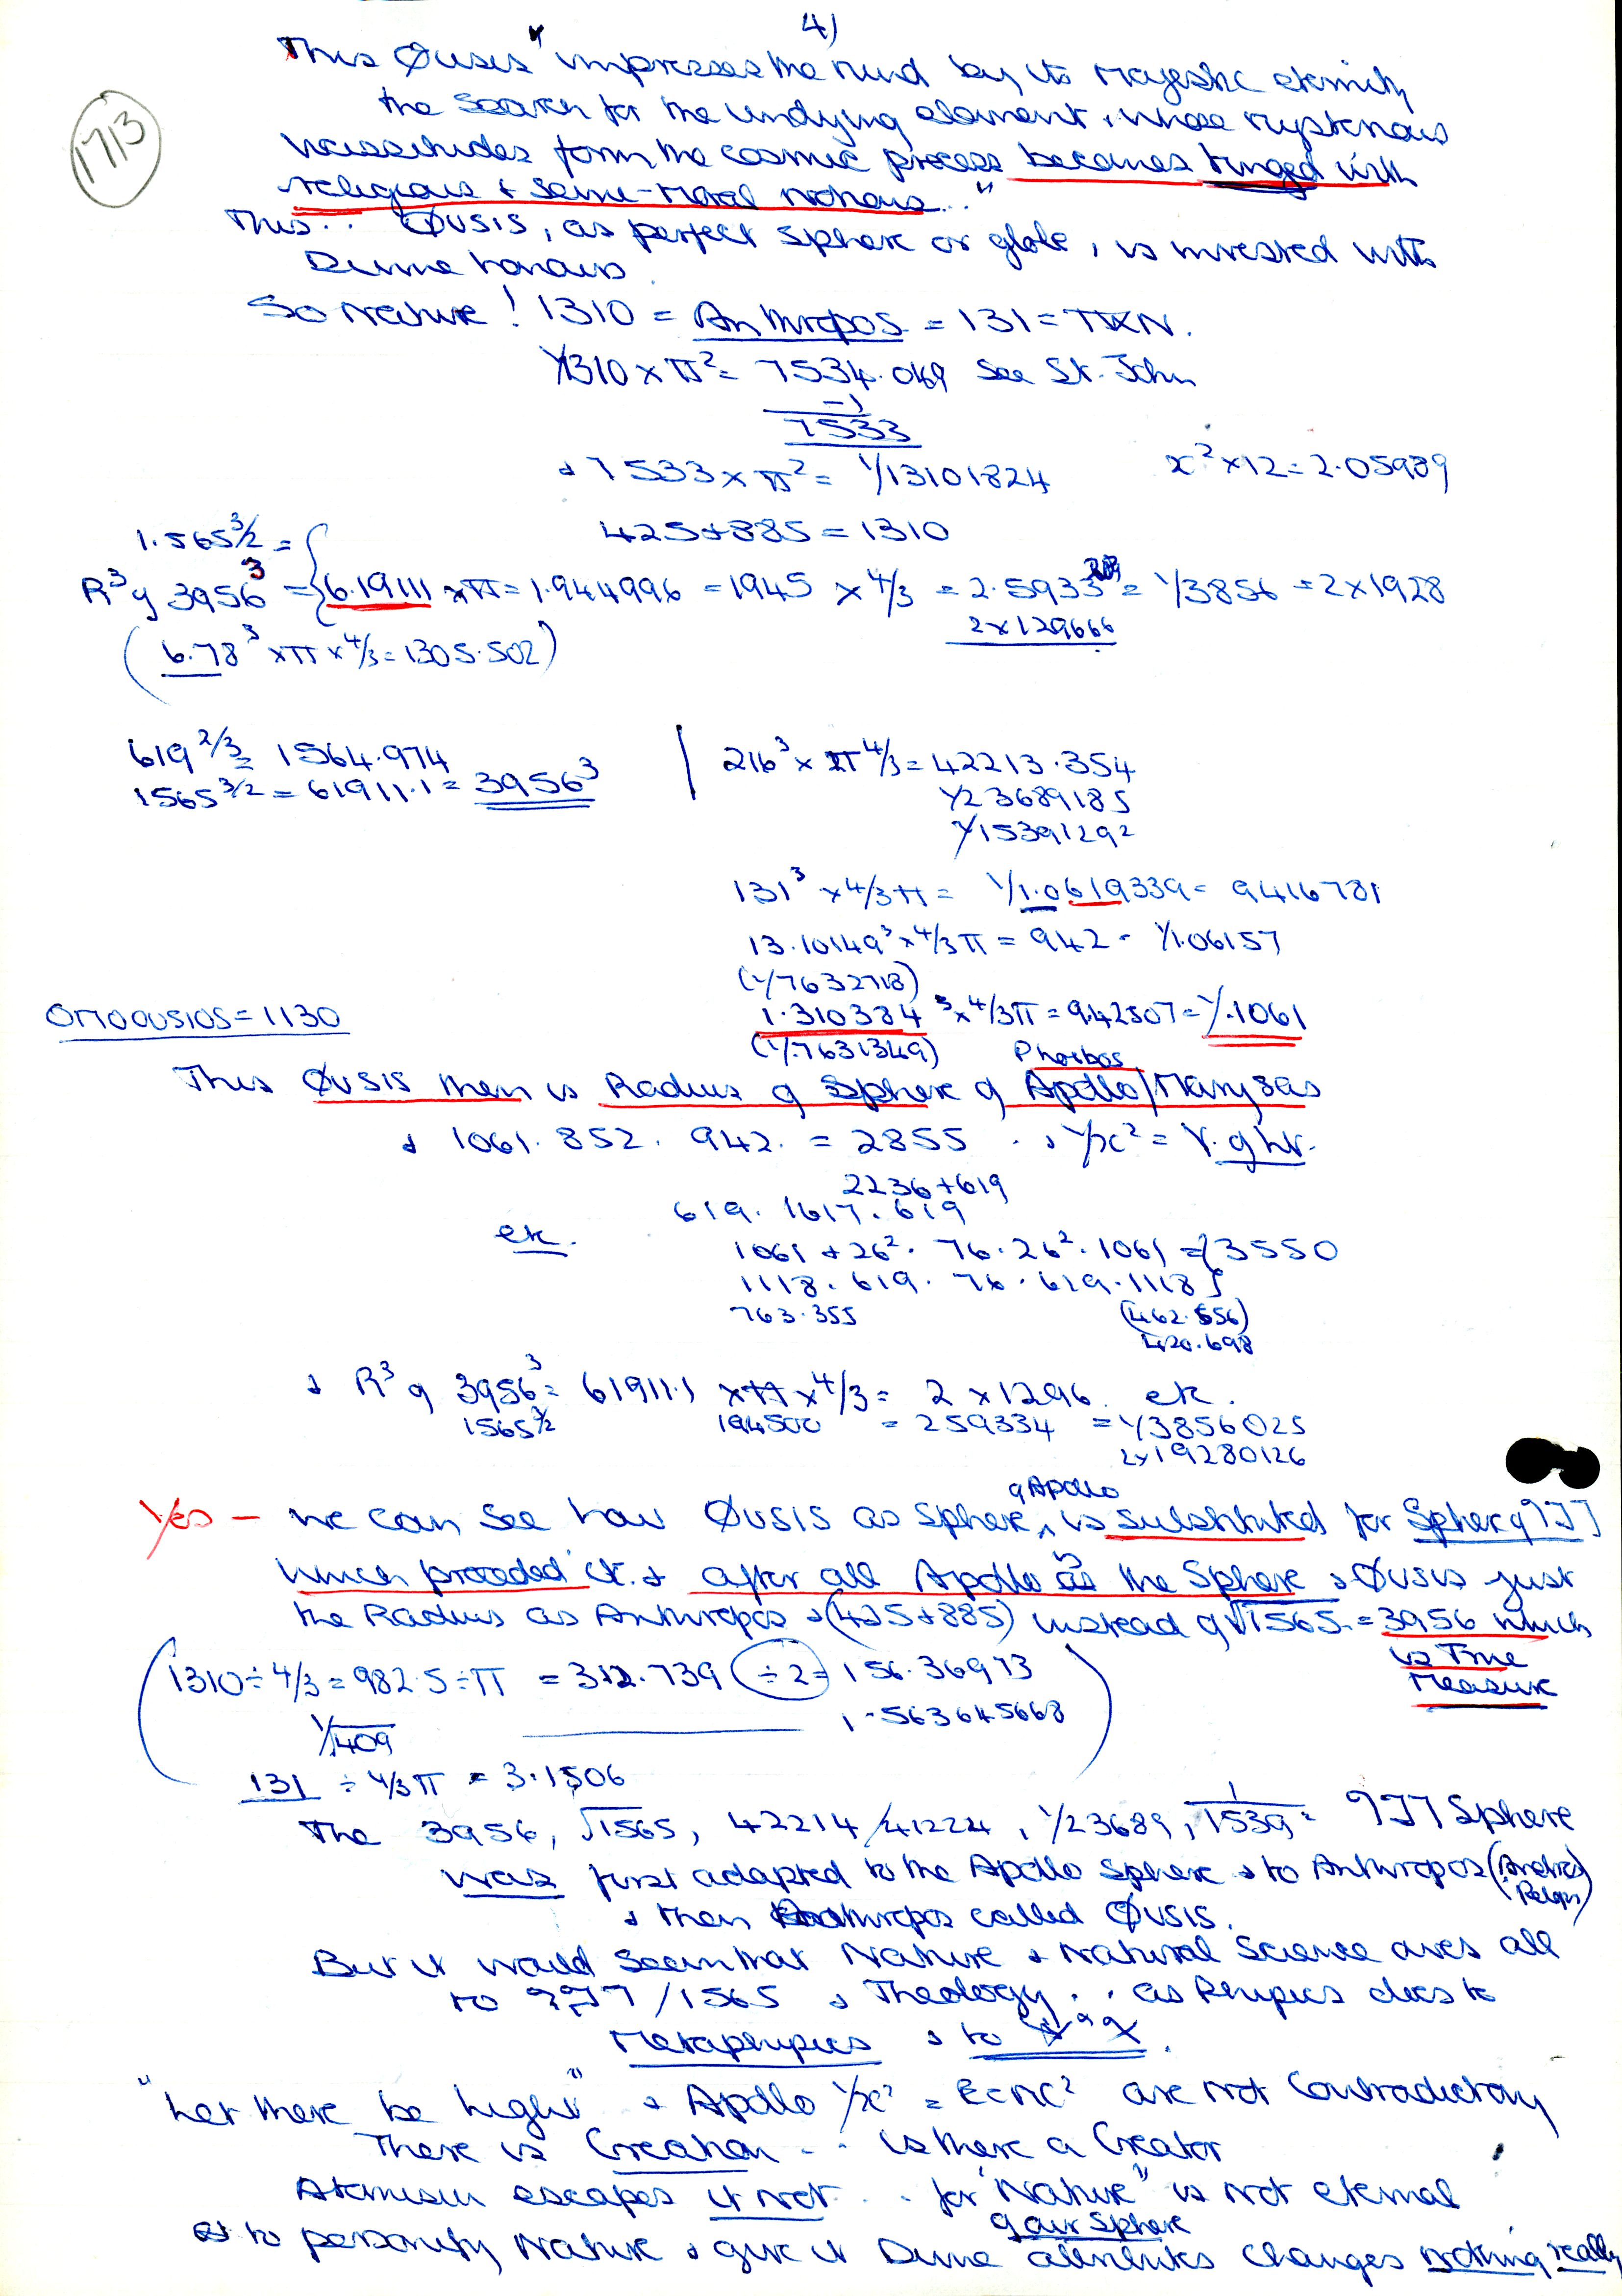 4)
1713
This Øusis" impresses the mind by its Majestic eternity
the search for the undying element, whose mysterious
vicissitudes form the cosmic process becomes tinged with
religious & semi-moral notions.."
This.. Øusis, as perfect sphere or globe, is invested with
Divine honours.
So Nature! 1310 = Anthropos = 131 =
1/1310 x π² = 7534.049 See St. John
-1
7533
& 7533 x π² = 1/13101824 x² x 12 = 2.05989
425+885 = 1310
1.565 3/2 =
R³ of 3956³ = {6.19111 x π = 1.944996 = 1945 x 4/3 = 2.5933 = 1/3856 = 2x1928
2x129666
(6.78³ x π x 4/3 = 1305.502)
619 2/3 = 1564.974
1565 3/2 = 61911.1 = 3956³
216³ x π 4/3 = 42213.354
1/23689185
1/15391292
131³ x 4/3 π = 1/1.0619339 = 9416781
13.10149³ x 4/3 π = 942 - 1/1.06157
(1/7632718)
OMOOUSIOS = 1130
1.310384 ³ x 4/3 π = 9.42507 = 1/.1061
(1/.7631349)
Phoebos
This Øusis then is Radius of Sphere of Apollo/Marsyas
& 1061. 852. 942. = 2855 . & 1/x² = V. of Hr.
2236+619
619. 1617. 619
etc.
1061 + 26². 76. 26². 1061 = {3550
1118. 619. 76. 619. 1118}
763.355 (462.556)
420.698
& R³ of 3956³ = 61911.1 x π x 4/3 = 2 x 1296 etc.
1565 3/2 194500 = 259334 = 1/3856025
2x19280126
of Apollo
Yes – we can see how Øusis as Sphere ^ is substituted for Sphere of
which preceded it. & after all Apollo is the Sphere & Øusis just
the Radius as Anthropos & (425+885) instead of √1565. = 3956 which
is True
Measure
(1310 ÷ 4/3 = 982.5 ÷ π = 312.739 ÷2 = 156.36973
1.563645668)
1/1409
131 ÷ 4/3 π = 3.1506
The 3956, √1565, 42214/41224, 1/23689, 1/1539 = Sphere
was first adapted to the Apollo Sphere & to Anthropos
& then Anthropos called Øusis.
But it would seem that Nature & Natural Science owes all
to /1565 & Theology.. as Physics does to
Metaphysics & to
"Let there be light" & Apollo 1/x² = E=mc² are not contradictory
There is Creation .. is there a Creator
Atomism escapes it not .. for "Nature" is not eternal
of our Sphere
& to personify Nature & give it Divine attributes changes nothing really